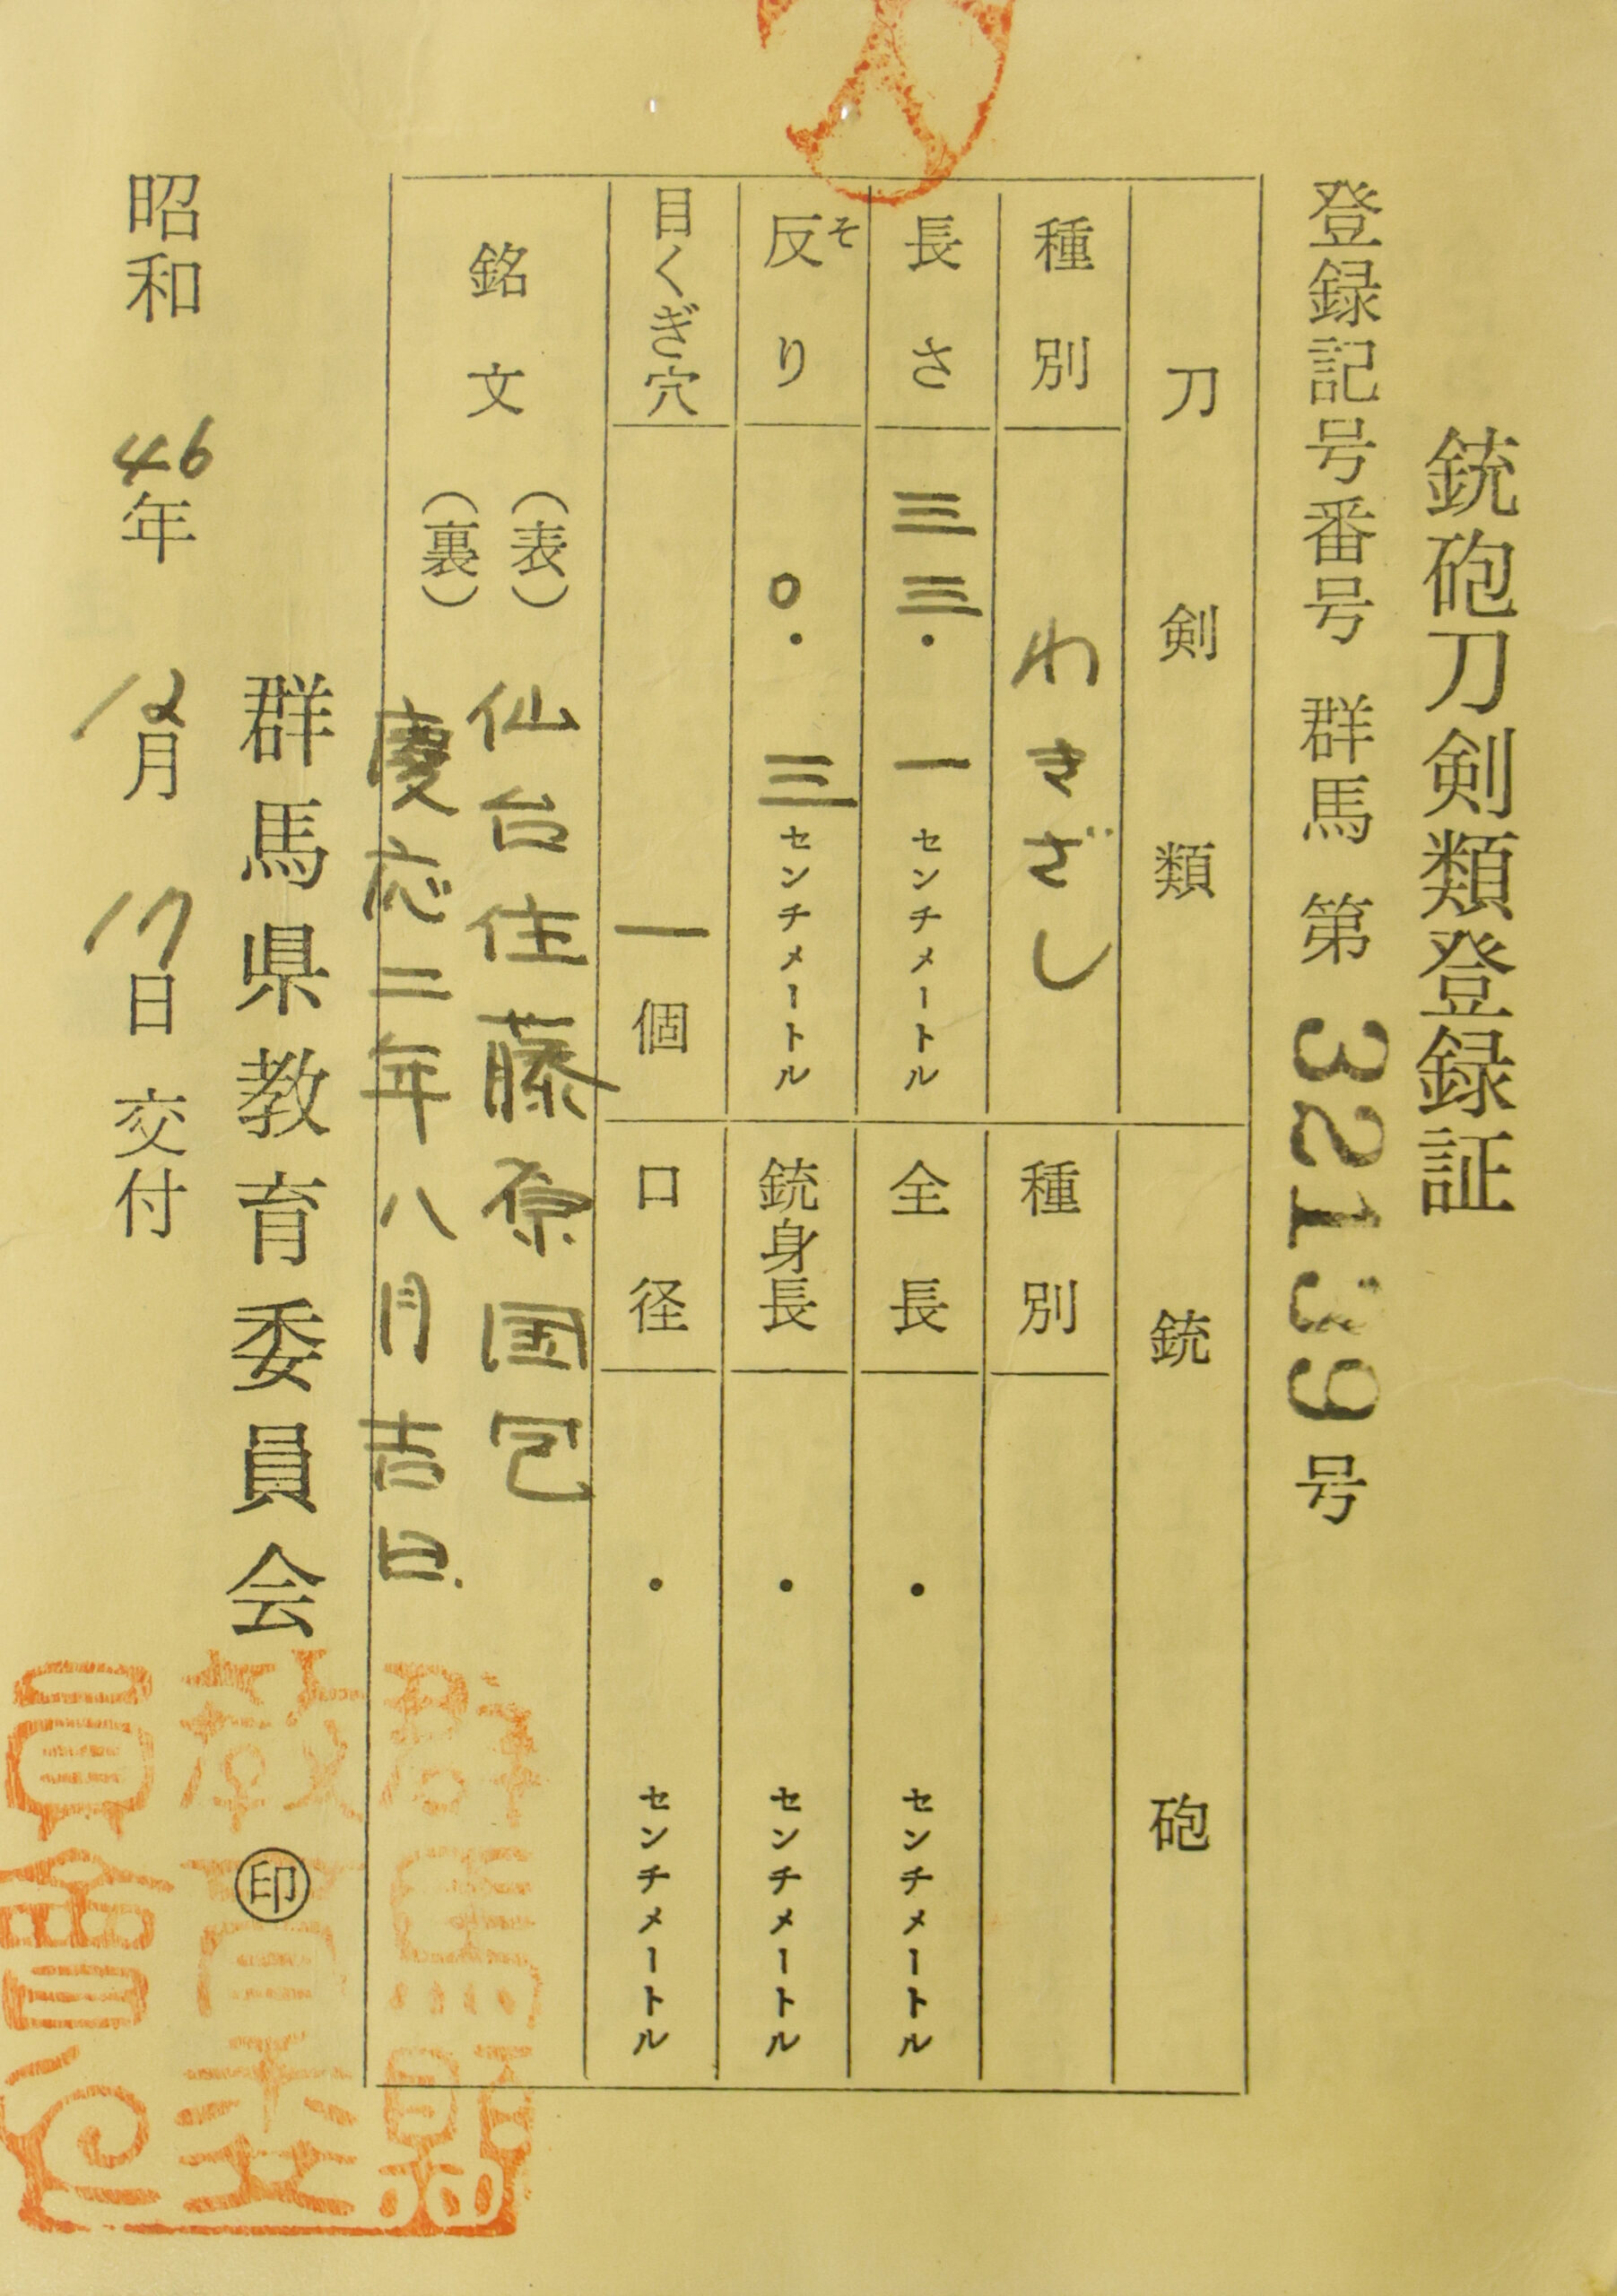 銃砲刀剣類登録証
登録記号番号 群馬 第 32139 号
刀剣類
種別 わきざし
長さ 三三・一センチメートル
反り そ 〇・三センチメートル
目くぎ穴 一個
銘文
(表) 仙台住藤原国包
(裏) 慶応二年八月吉日.
銃砲
種別
全長 ・ センチメートル
銃身長 ・ センチメートル
口径 ・ センチメートル
群馬県教育委員会 ㊞
昭和46年12月17日交付
群馬縣
教育委
員會印